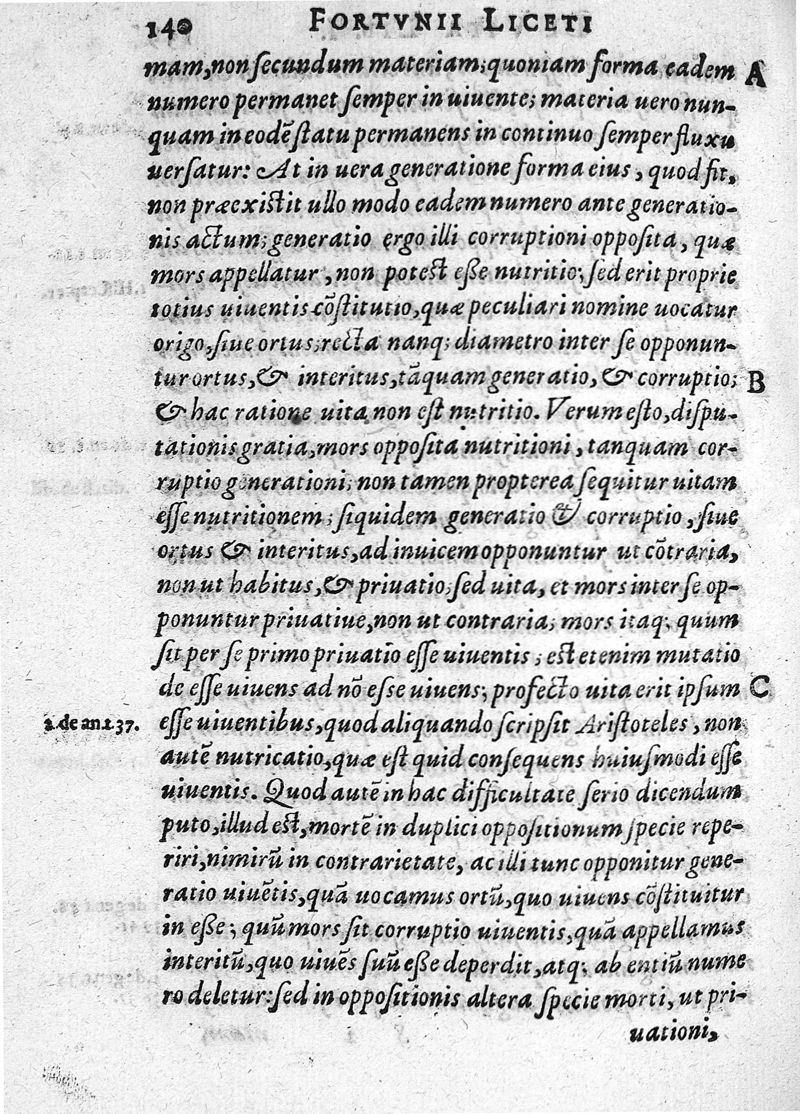 140 FORTVNII LICETI
mam, non ſecundum materiam; quoniam forma eadem A
numero permanet ſemper in uiuente; materia uero nun-
quam in eodẽ ſtatu permanens in continuo ſemper fluxu
uerſatur: At in uera generatione forma eius, quod fit,
non præexiſtit ullo modo eadem numero ante generatio-
nis actum; generatio ergo illi corruptioni oppoſita, quæ
mors appellatur, non poteſt eſſe nutritio; ſed erit proprie
totius uiuentis cõſtitutio, quæ peculiari nomine uocatur
origo, ſiue ortus; recta nanq; diametro inter ſe opponun-
tur ortus, & interitus, tãquam generatio, & corruptio; B
& hac ratione uita non eſt nutritio. Verum eſto, diſpu-
tationis gratia, mors oppoſita nutritioni, tanquam cor-
ruptio generationi; non tamen propterea ſequitur uitam
eſſe nutritionem; ſiquidem generatio & corruptio, ſiue
ortus & interitus, ad inuicem opponuntur ut cõtraria,
non ut habitus, & priuatio; ſed uita, et mors inter ſe op-
ponuntur priuatiue, non ut contraria; mors itaq; quum
ſit per ſe primo priuatio eſſe uiuentis; eſt etenim mutatio
de eſſe uiuens ad nõ eſse uiuens; profecto uita erit ipſum C
2. de an. t. 37. eſſe uiuentibus, quod aliquando ſcripſit Ariſtoteles, non
autẽ nutricatio, quæ eſt quid conſequens huiuſmodi eſſe
uiuentis. Quod autẽ in hac difficultate ſerio dicendum
puto, illud eſt, mortẽ in duplici oppoſitionum ſpecie repe-
riri, nimirũ in contrarietate, ac illi tunc opponitur gene-
ratio uiuẽtis, quã uocamus ortũ, quo uiuens cõſtituitur
in eſſe; quũ mors ſit corruptio uiuentis, quã appellamus
interitũ, quo uiuẽs ſuũ eſſe deperdit, atq; ab entiũ nume
ro deletur: ſed in oppoſitionis altera ſpecie morti, ut pri-
uationi,